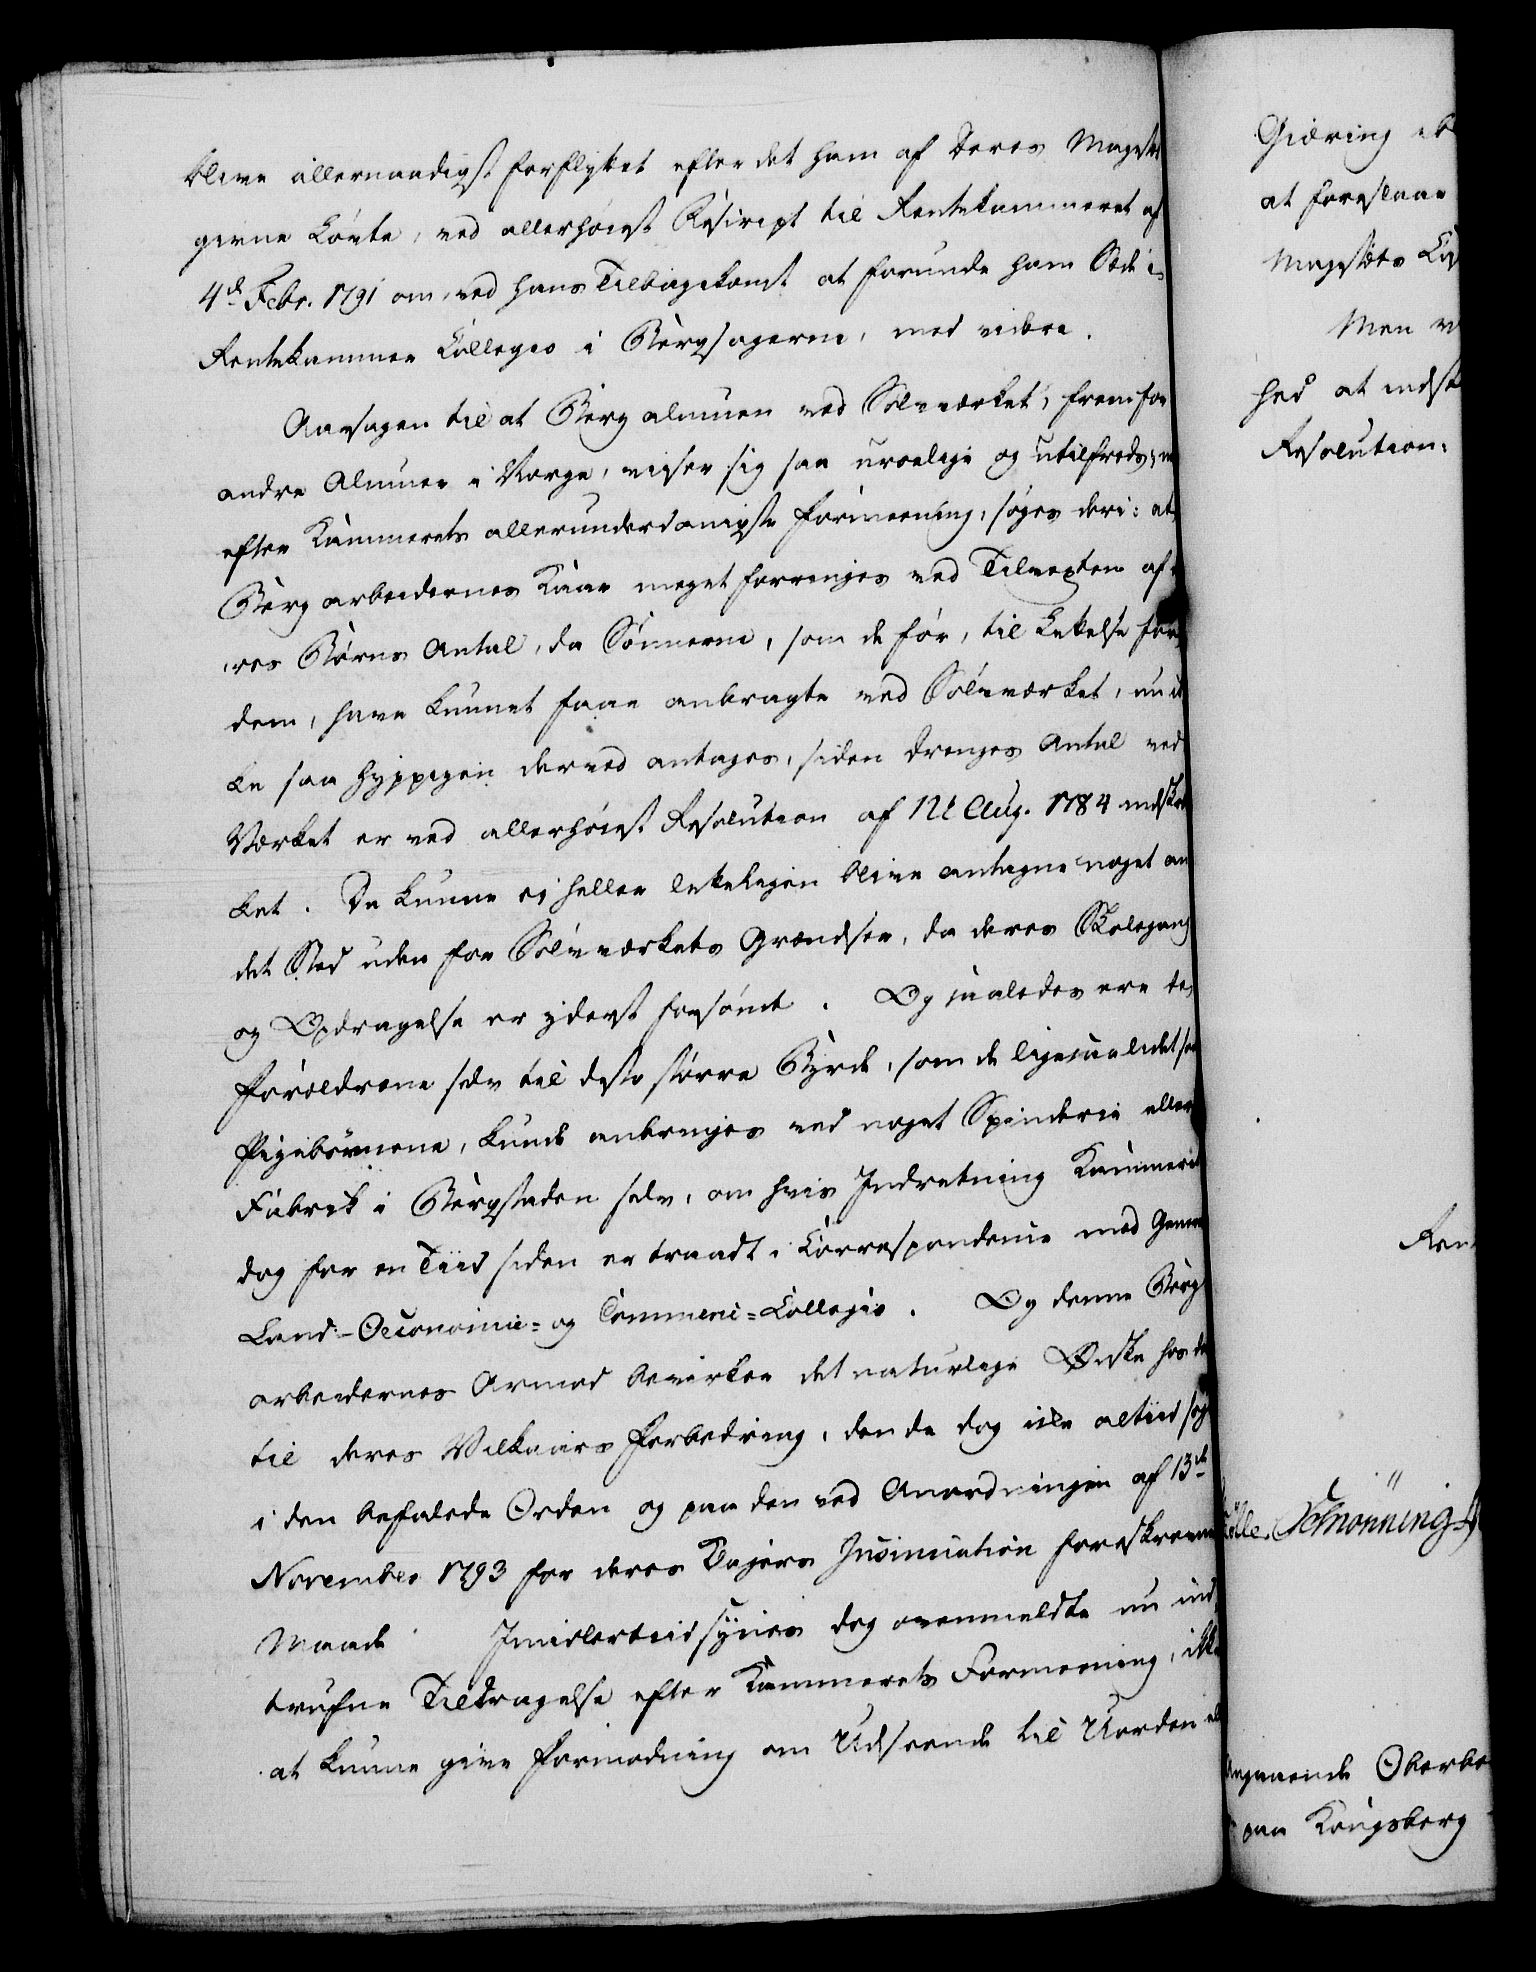 blive allernaadigst forflyttet efter det ham af Deres Majests
givne Løvte, ved allerhøiest Rescript til Rentekammeret af
4d. Febr. 1791 om, ved hans Tilbagekomst at forunde ham Sæde i
Rentekammer Collegio i Bergsagerne, med videre.
Aarsagen til at Berg almuen ved Sølvværket, fremfor
andre Almuer i Norge, viser sig saa uroelige og utilfreds,
efter Kammerets allerunderdanigste Formeening, søges deri: at
Berg arbeidernes Kaar meget forringes ved Tilvexten af
res Børns Antal, da Sønnerne, som de før, til Lettelse for
dem, have kunnet faae anbragte ved Sølvværket, nu ik
ke saa hyppigen derved antages, siden Drenges Antal ved
Værket er ved allerhøiest Resolution af 12t Aug. 1784 indskræn
ket. De kunne ei heller letteligen blive antagne noget an
det Sted uden for Sølvværkets Grændser, da deres Skolegang
og Opdragelse er yderst forsømt. Og saaledes ere de
Forældrene selv til desto større Byrde, som de ligesaalidet som
Pigebørnene, kunde anbringes ved noget Spinderie eller
Fabrik i Bergstaden selv, om hvis Indretning Kammeret
dog for en Tiid siden er traadt i Correspondence med General
Land-Oeconomie- og Commerce-Collegio. Og denne Berg
arbeidernes Armod bevirker det naturlige Ønske hos dem
til deres Vilkaars Forbedring, den de dog ikke altiid søge
i den befalede Orden og paa den ved Anordningen af 13de
November 1793 for deres Klagers Insinuation foreskrevne
Maade Imidlertiid synes dog ovenmeldte nu ind
trufne Tildragelse efter Kammerets Formeening, ikke
at kunne give Formodning om Udseende til Uorden
Giæring
at foreslaae
Majestæts
Men
hed at indst
Resolution.
Ren
Schønning
Angaaende Oberbe
paa Kongsberg